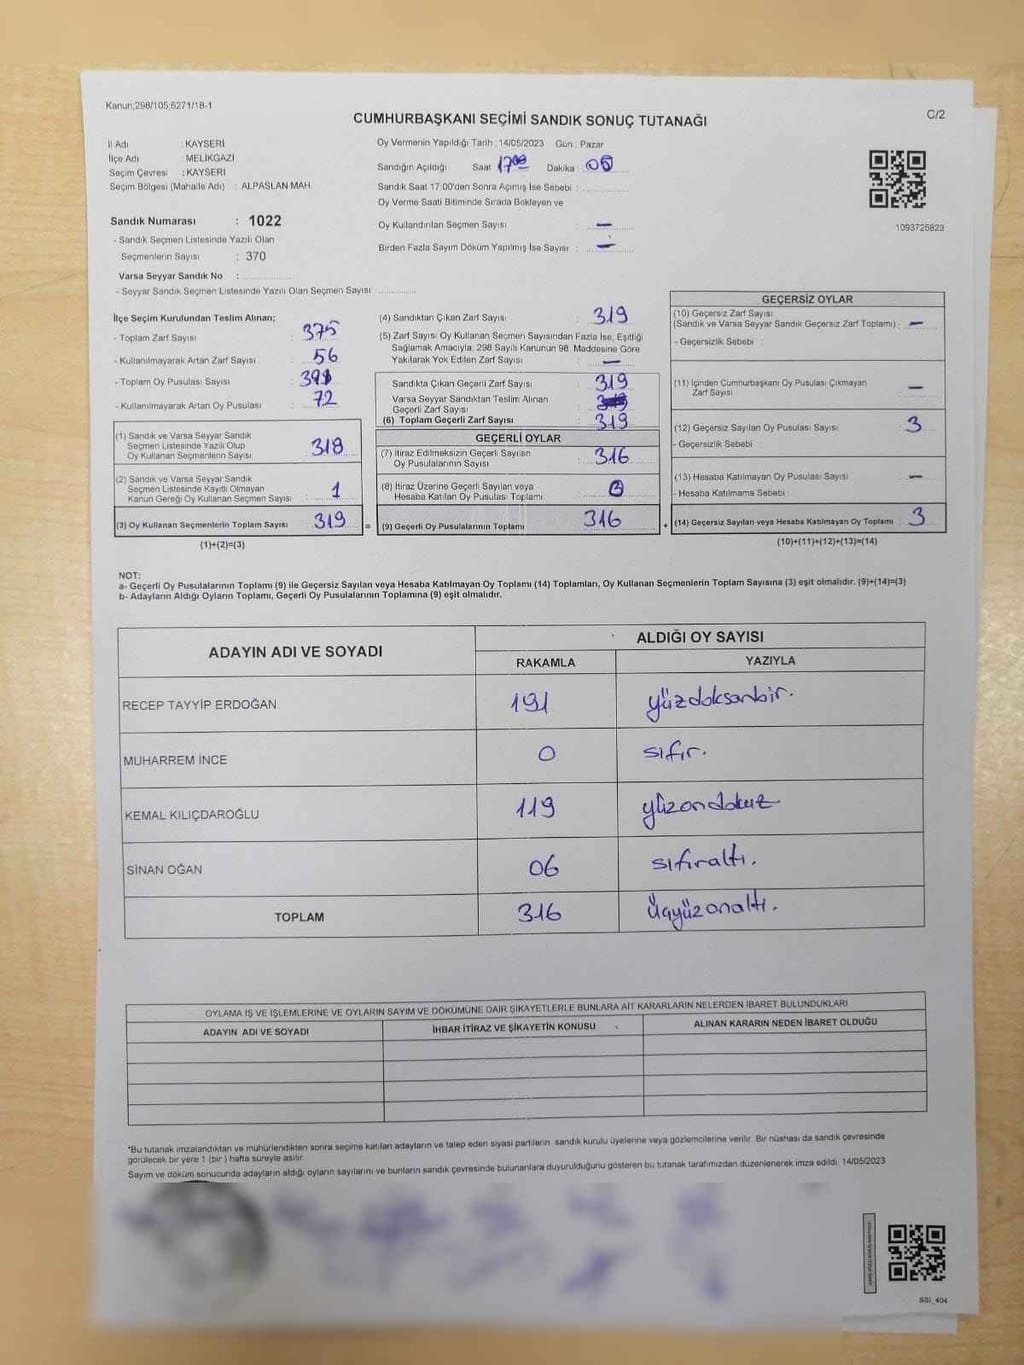 Kanun;298/105;6271/18-1
C/2
CUMHURBAŞKANI SEÇİMİ SANDIK SONUÇ TUTANAĞI
İl Adı : KAYSERİ
İlçe Adı : MELİKGAZİ
Seçim Çevresi : KAYSERİ
Seçim Bölgesi (Mahalle Adı) : ALPASLAN MAH.
Oy Vermenin Yapıldığı Tarih : 14/05/2023 Gün : Pazar
Sandığın Açıldığı Saat 17:00 Dakika : 05
Sandık Saat 17.00'den Sonra Açılmış İse Sebebi :
Oy Verme Saati Bitiminde Sırada Bekleyen ve
Oy Kullandırılan Seçmen Sayısı : —
Birden Fazla Sayım Döküm Yapılmış İse Sayısı : —
1093725823
Sandık Numarası : 1022
- Sandık Seçmen Listesinde Yazılı Olan
Seçmenlerin Sayısı : 370
Varsa Seyyar Sandık No :
- Seyyar Sandık Seçmen Listesinde Yazılı Olan Seçmen Sayısı :
İlçe Seçim Kurulundan Teslim Alınan;
- Toplam Zarf Sayısı : 375
- Kullanılmayarak Artan Zarf Sayısı : 56
- Toplam Oy Pusulası Sayısı :
- Kullanılmayarak Artan Oy Pusulası : 72
(1) Sandık ve Varsa Seyyar Sandık
Seçmen Listesinde Yazılı Olup
Oy Kullanan Seçmenlerin Sayısı : 318
(2) Sandık ve Varsa Seyyar Sandık
Seçmen Listesinde Kayıtlı Olmayan
Kanun Gereği Oy Kullanan Seçmen Sayısı : 1
(3) Oy Kullanan Seçmenlerin Toplam Sayısı : 319 =
(1)+(2)=(3)
(4) Sandıktan Çıkan Zarf Sayısı : 319
(5) Zarf Sayısı Oy Kullanan Seçmen Sayısından Fazla İse, Eşitliği
Sağlamak Amacıyla; 298 Sayılı Kanunun 98. Maddesine Göre
Yakılarak Yok Edilen Zarf Sayısı : —
Sandıkta Çıkan Geçerli Zarf Sayısı : 319
Varsa Seyyar Sandıktan Teslim Alınan
Geçerli Zarf Sayısı :
(6) Toplam Geçerli Zarf Sayısı : 319
GEÇERLİ OYLAR
(7) İtiraz Edilmeksizin Geçerli Sayılan
Oy Pusulalarının Sayısı : 316
(8) İtiraz Üzerine Geçerli Sayılan veya
Hesaba Katılan Oy Pusulası Toplamı :
(9) Geçerli Oy Pusulalarının Toplamı : 316 +
GEÇERSİZ OYLAR
(10) Geçersiz Zarf Sayısı
(Sandık ve Varsa Seyyar Sandık Geçersiz Zarf Toplamı) : —
- Geçersizlik Sebebi :
(11) İçinden Cumhurbaşkanı Oy Pusulası Çıkmayan
Zarf Sayısı : —
(12) Geçersiz Sayılan Oy Pusulası Sayısı : 3
- Geçersizlik Sebebi :
(13) Hesaba Katılmayan Oy Pusulası Sayısı : —
- Hesaba Katılmama Sebebi :
(14) Geçersiz Sayılan veya Hesaba Katılmayan Oy Toplamı : 3
(10)+(11)+(12)+(13)=(14)
NOT:
a- Geçerli Oy Pusulalarının Toplamı (9) ile Geçersiz Sayılan veya Hesaba Katılmayan Oy Toplamı (14) Toplamları, Oy Kullanan Seçmenlerin Toplam Sayısına (3) eşit olmalıdır. (9)+(14)=(3)
b- Adayların Aldığı Oyların Toplamı, Geçerli Oy Pusulalarının Toplamına (9) eşit olmalıdır.
ADAYIN ADI VE SOYADI
ALDIĞI OY SAYISI
RAKAMLA YAZIYLA
RECEP TAYYİP ERDOĞAN 191 yüzdoksanbir.
MUHARREM İNCE 0 sıfır.
KEMAL KILIÇDAROĞLU 119 yüzondokuz
SİNAN OĞAN 06 sıfıraltı.
TOPLAM 316 üçyüzonaltı.
OYLAMA İŞ VE İŞLEMLERİNE VE OYLARIN SAYIM VE DÖKÜMÜNE DAİR ŞİKAYETLERLE BUNLARA AİT KARARLARIN NELERDEN İBARET BULUNDUKLARI
ADAYIN ADI VE SOYADI İHBAR İTİRAZ VE ŞİKAYETİN KONUSU ALINAN KARARIN NEDEN İBARET OLDUĞU
*Bu tutanak imzalandıktan ve mühürlendikten sonra seçime katılan adayların ve talep eden siyasi partilerin, sandık kurulu üyelerine veya gözlemcilerine verilir. Bir nüshası da sandık çevresinde
görülecek bir yere 1 (bir ) hafta süreyle asılır.
Sayım ve döküm sonucunda adayların aldığı oyların sayılarını ve bunların sandık çevresinde bulunanlara duyurulduğunu gösteren bu tutanak tarafımızdan düzenlenerek imza edildi. 14/05/2023
SSI_404